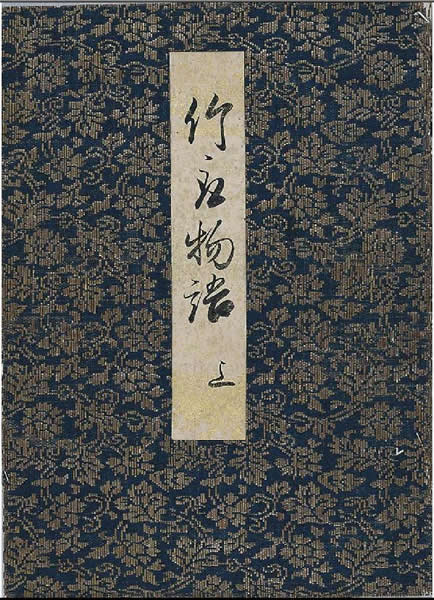 竹取物語 上